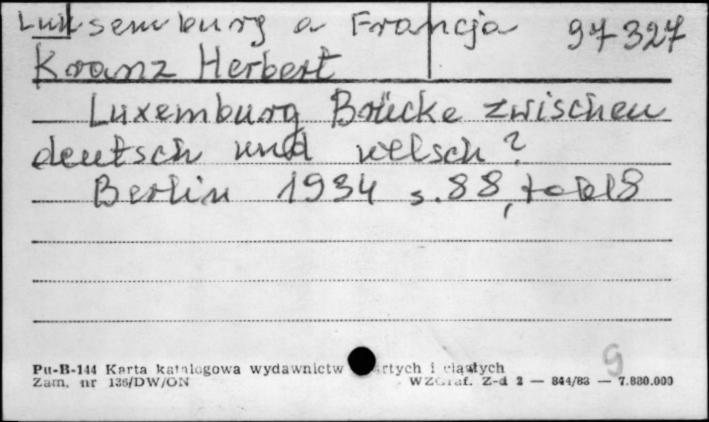 Luksemburg a Francja 97327
Kranz Herbert
Luxemburg Brücke zwischen
deutsch und welsch?
Berlin 1934 s. 88, tabl 8
9
Pu-B-144 Karta katalogowa wydawnictw zwartych i ciągłych
Zam. nr 136/DW/ON WZGraf. Z-d 2 — 844/83 — 7.880.000